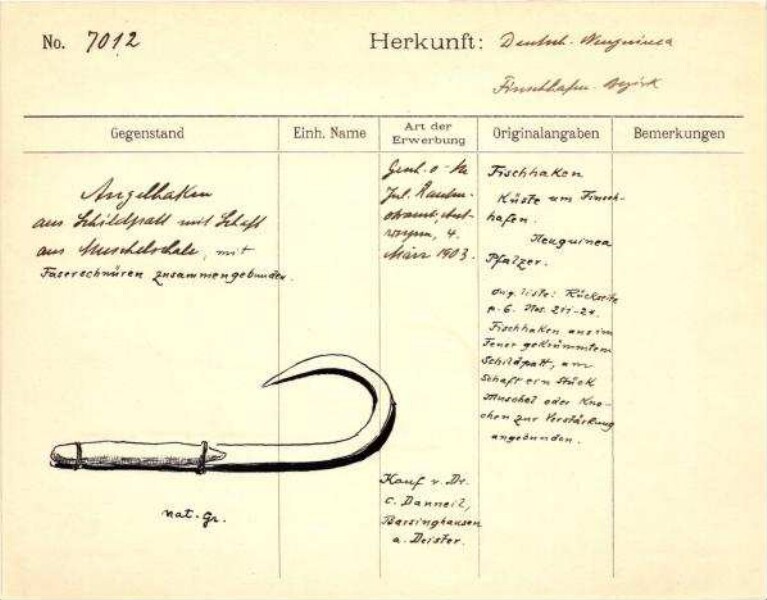 No. 7012
Herkunft: Deutsch-Neuguinea
Finschhafen-Bezirk
Gegenstand
Einh. Name
Art der Erwerbung
Originalangaben
Bemerkungen
Angelhaken
aus Schildpatt mit Schaft
aus Muschelschale, mit
Faserschnüren zusammengebunden.
4.
März 1903.
Kauf v. Dr.
C. Danneil,
Barsinghausen
a. Deister.
Fischhaken
Küste um Finsch-
hafen.
Neuguinea
Pfalzer.
Orig. liste: Rückseite
p. 6. Nos.
Fischhaken aus im
Feuer gekrümmtem
Schildpatt, am
Schaft ein Stück
Muschel oder Kno-
chen zur Verstärkung
angebunden.
nat. Gr.